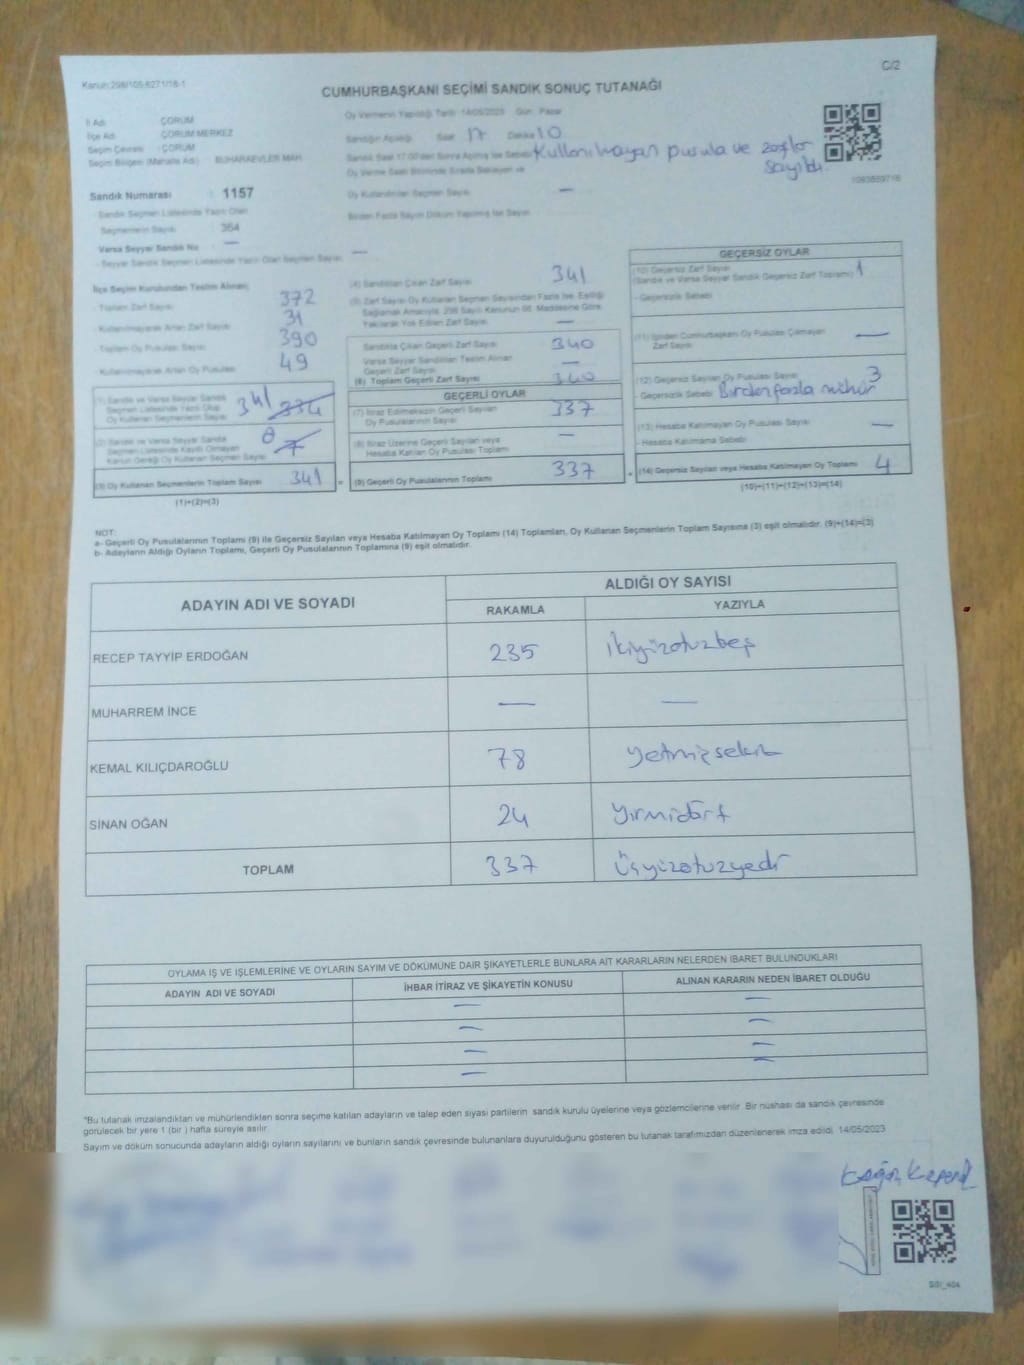 Kanun:298/105-6271/16-1
C/2
CUMHURBAŞKANI SEÇİMİ SANDIK SONUÇ TUTANAĞI
İl Adı ÇORUM
İlçe Adı ÇORUM MERKEZ
Seçim Çevresi : ÇORUM
Seçim Bölgesi (Mahalle Adı) : BUHARAEVLER MAH.
Oy Vermenin Yapıldığı Tarih 14/05/2023 Gün: Pazar
Sandığın Açıldığı Saat 17 Dakika 10
Sandık Saat 17.00'den Sonra Açılmış İse Sebebi Kullanılmayan pusula ve zarflar sayıldı.
Oy Verme Saati Bitiminde Sırada Bekleyen ve
Oy Kullandırılan Seçmen Sayısı —
Birden Fazla Sayım Döküm Yapılmış İse Sayısı
Sandık Numarası : 1157
Sandık Seçmen Listesinde Yazılı Olan
Seçmenlerin Sayısı : 364
Varsa Seyyar Sandık No —
- Seyyar Sandık Seçmen Listesinde Yazılı Olan Seçmen Sayısı —
İlçe Seçim Kurulundan Teslim Alınan;
- Toplam Zarf Sayısı 372
- Kullanılmayarak Artan Zarf Sayısı 31
Toplam Oy Pusulası Sayısı 390
Kullanılmayarak Artan Oy Pusulası 49
(1) Sandık ve Varsa Seyyar Sandık
Seçmen Listesinde Yazılı Olup
Oy Kullanan Seçmenlerin Sayısı 341 334
(2) Sandık ve Varsa Seyyar Sandık
Seçmen Listesinde Kayıtlı Olmayan
Kanun Gereği Oy Kullanan Seçmen Sayısı 0 7
(3) Oy Kullanan Seçmenlerin Toplam Sayısı 341
(1)+(2)=(3)
(4) Sandıktan Çıkan Zarf Sayısı 341
(5) Zarf Sayısı Oy Kullanan Seçmen Sayısından Fazla İse, Eşitliği
Sağlamak Amacıyla, 298 Sayılı Kanunun 98. Maddesine Göre
Yakılarak Yok Edilen Zarf Sayısı —
Sandıkta Çıkan Geçerli Zarf Sayısı 340
Varsa Seyyar Sandıktan Teslim Alınan
Geçerli Zarf Sayısı —
(6) Toplam Geçerli Zarf Sayısı 340
GEÇERLİ OYLAR
(7) İtiraz Edilmeksizin Geçerli Sayılan
Oy Pusulalarının Sayısı 337
(8) İtiraz Üzerine Geçerli Sayılan veya
Hesaba Katılan Oy Pusulası Toplamı —
(9) Geçerli Oy Pusulalarının Toplamı 337
GEÇERSİZ OYLAR
(10) Geçersiz Zarf Sayısı
(Sandık ve Varsa Seyyar Sandık Geçersiz Zarf Toplamı) 1
- Geçersizlik Sebebi
(11) İçinden Cumhurbaşkanı Oy Pusulası Çıkmayan
Zarf Sayısı —
(12) Geçersiz Sayılan Oy Pusulası Sayısı 3
- Geçersizlik Sebebi Birden fazla mühür
(13) Hesaba Katılmayan Oy Pusulası Sayısı —
- Hesaba Katılmama Sebebi
(14) Geçersiz Sayılan veya Hesaba Katılmayan Oy Toplamı 4
(10)+(11)+(12)+(13)=(14)
NOT:
a- Geçerli Oy Pusulalarının Toplamı (9) ile Geçersiz Sayılan veya Hesaba Katılmayan Oy Toplamı (14) Toplamları, Oy Kullanan Seçmenlerin Toplam Sayısına (3) eşit olmalıdır. (9)+(14)=(3)
b- Adayların Aldığı Oyların Toplamı, Geçerli Oy Pusulalarının Toplamına (9) eşit olmalıdır.
ADAYIN ADI VE SOYADI
ALDIĞI OY SAYISI
RAKAMLA YAZIYLA
RECEP TAYYİP ERDOĞAN 235 ikiyüzotuzbeş
MUHARREM İNCE — —
KEMAL KILIÇDAROĞLU 78 yetmişsekiz
SİNAN OĞAN 24 yirmidört
TOPLAM 337 üçyüzotuzyedi
OYLAMA İŞ VE İŞLEMLERİNE VE OYLARIN SAYIM VE DÖKÜMÜNE DAİR ŞİKAYETLERLE BUNLARA AİT KARARLARIN NELERDEN İBARET BULUNDUKLARI
ADAYIN ADI VE SOYADI İHBAR İTİRAZ VE ŞİKAYETİN KONUSU ALINAN KARARIN NEDEN İBARET OLDUĞU
— —
— —
— —
— —
"Bu tutanak imzalandıktan ve mühürlendikten sonra seçime katılan adayların ve talep eden siyasi partilerin sandık kurulu üyelerine veya gözlemcilerine verilir. Bir nüshası da sandık çevresinde
görülecek bir yere 1 (bir ) hafta süreyle asılır.
Sayım ve döküm sonucunda adayların aldığı oyların sayılarını ve bunların sandık çevresinde bulunanlara duyurulduğunu gösteren bu tutanak tarafımızdan düzenlenerek imza edildi. 14/05/2023